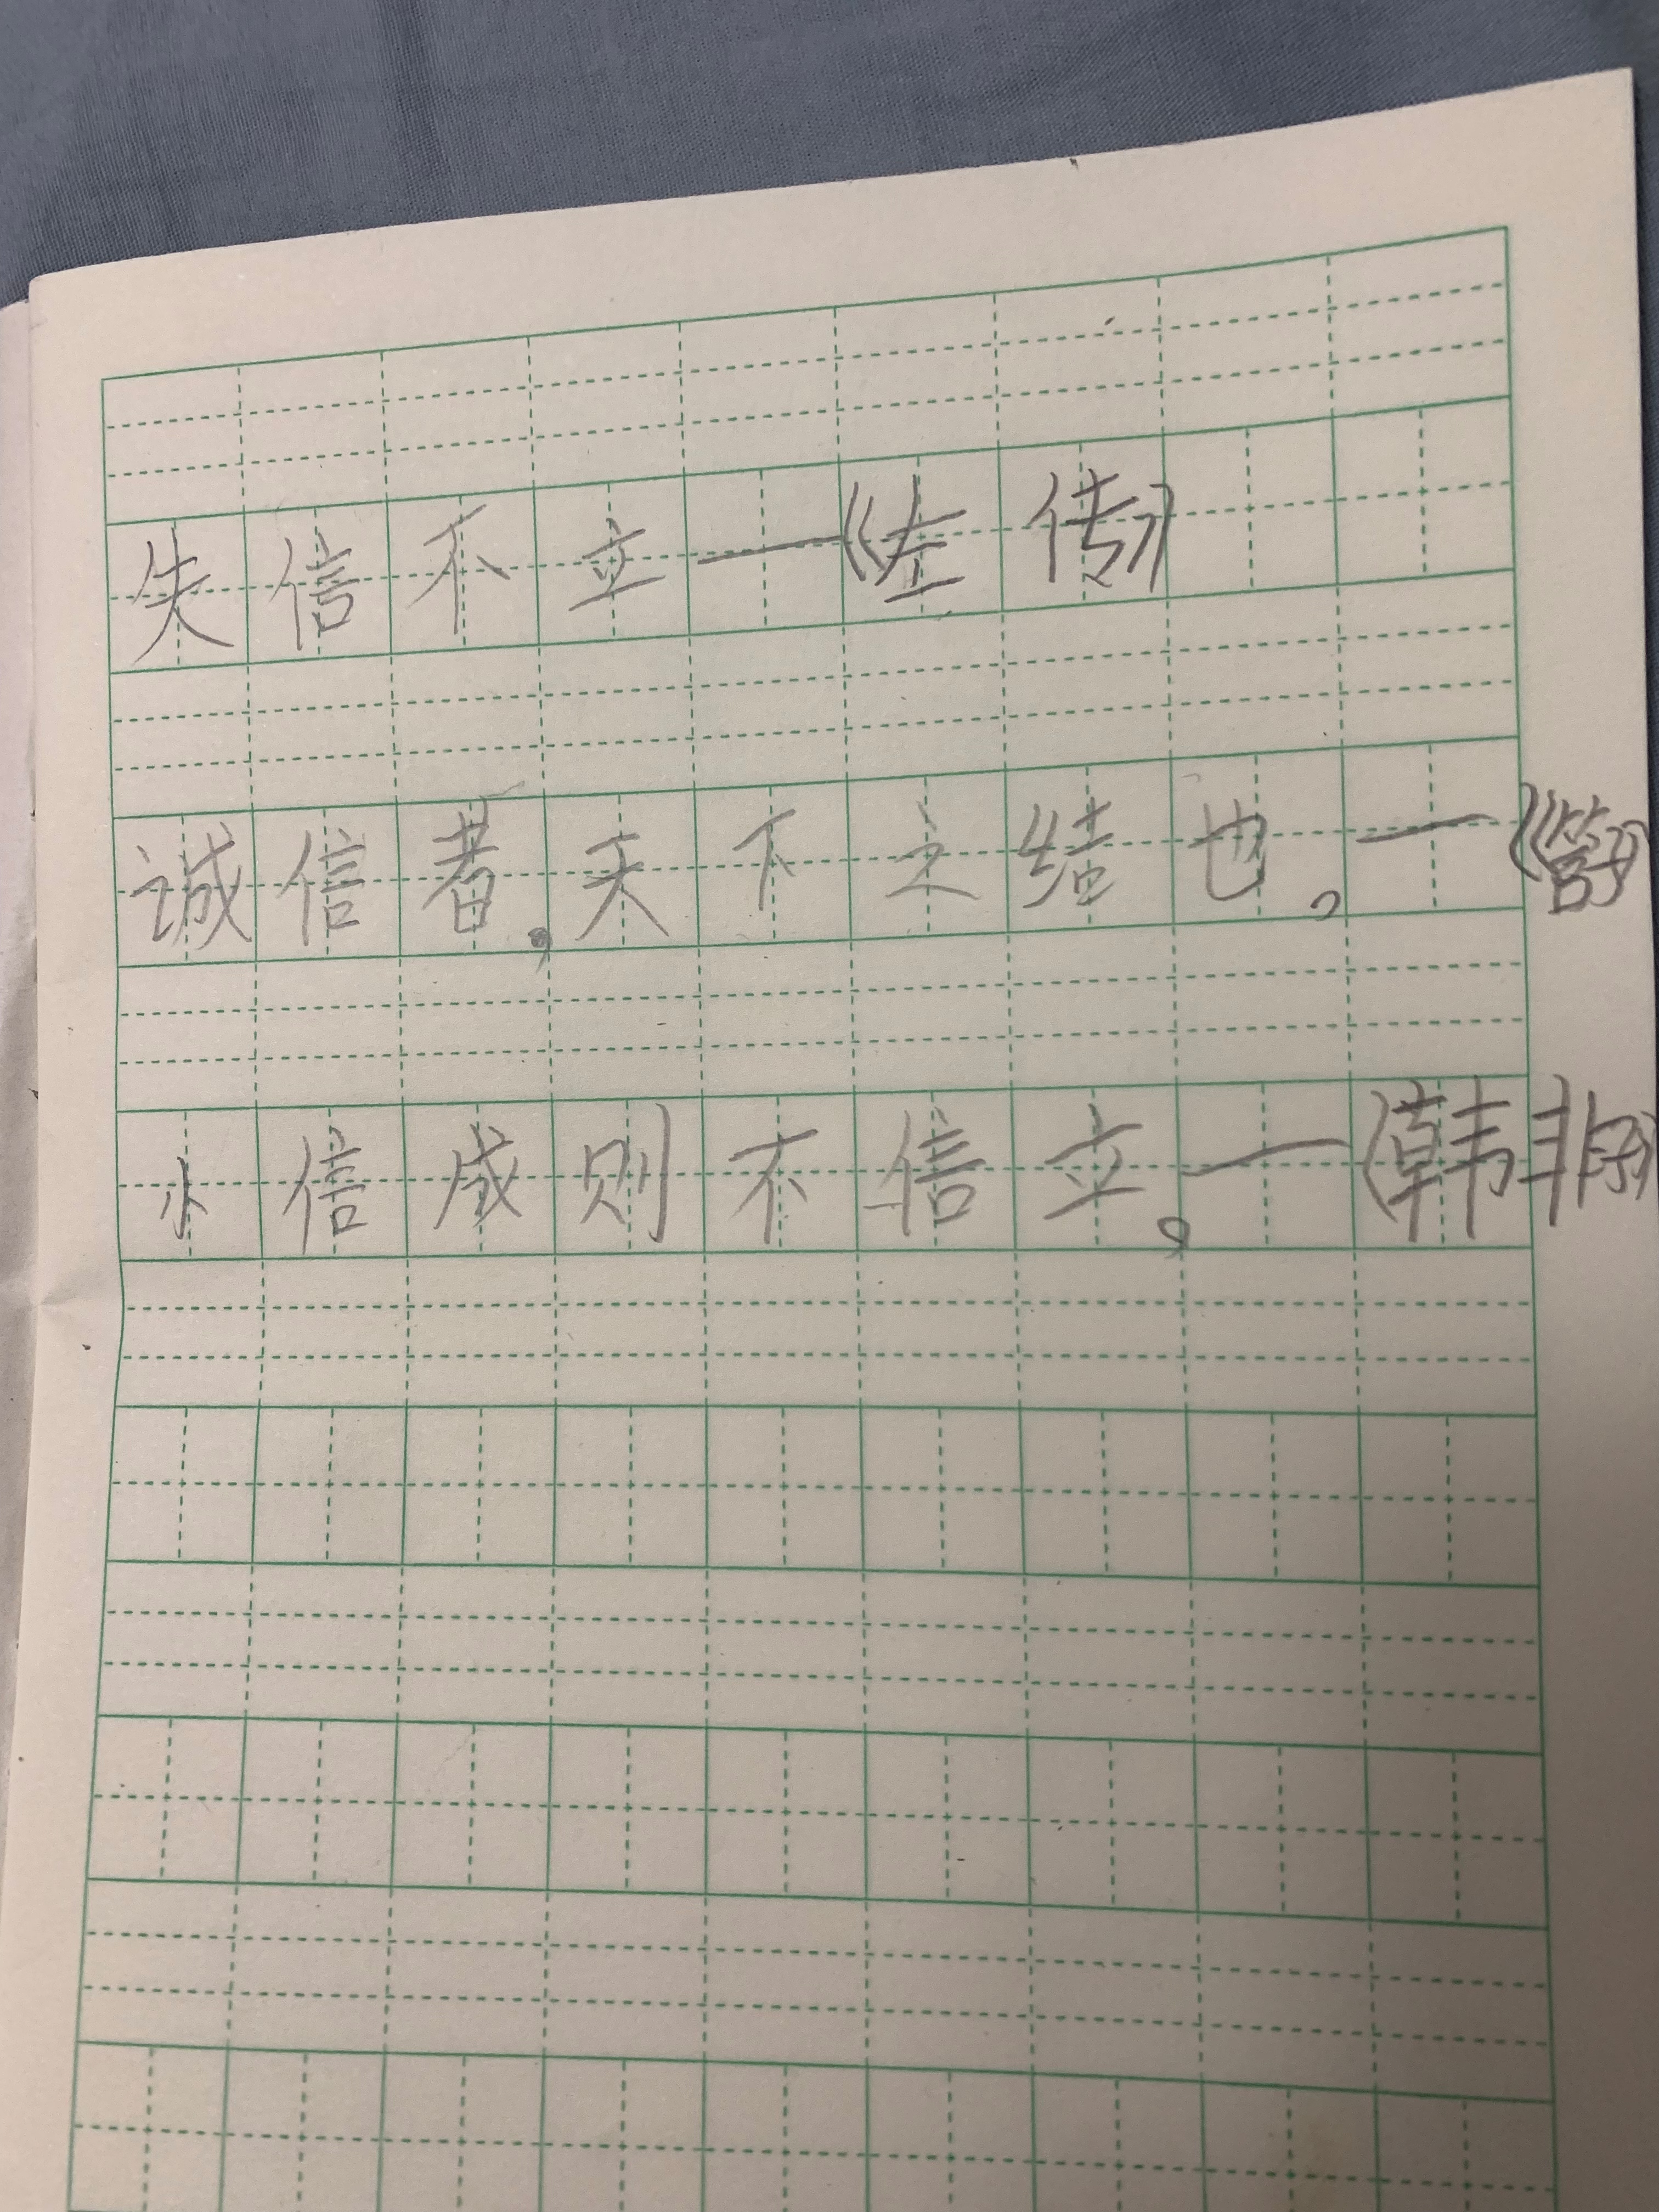 失信不立—《左传》
诚信者,天下之结也。—《管子》
小信成则不信立。—《韩非子》